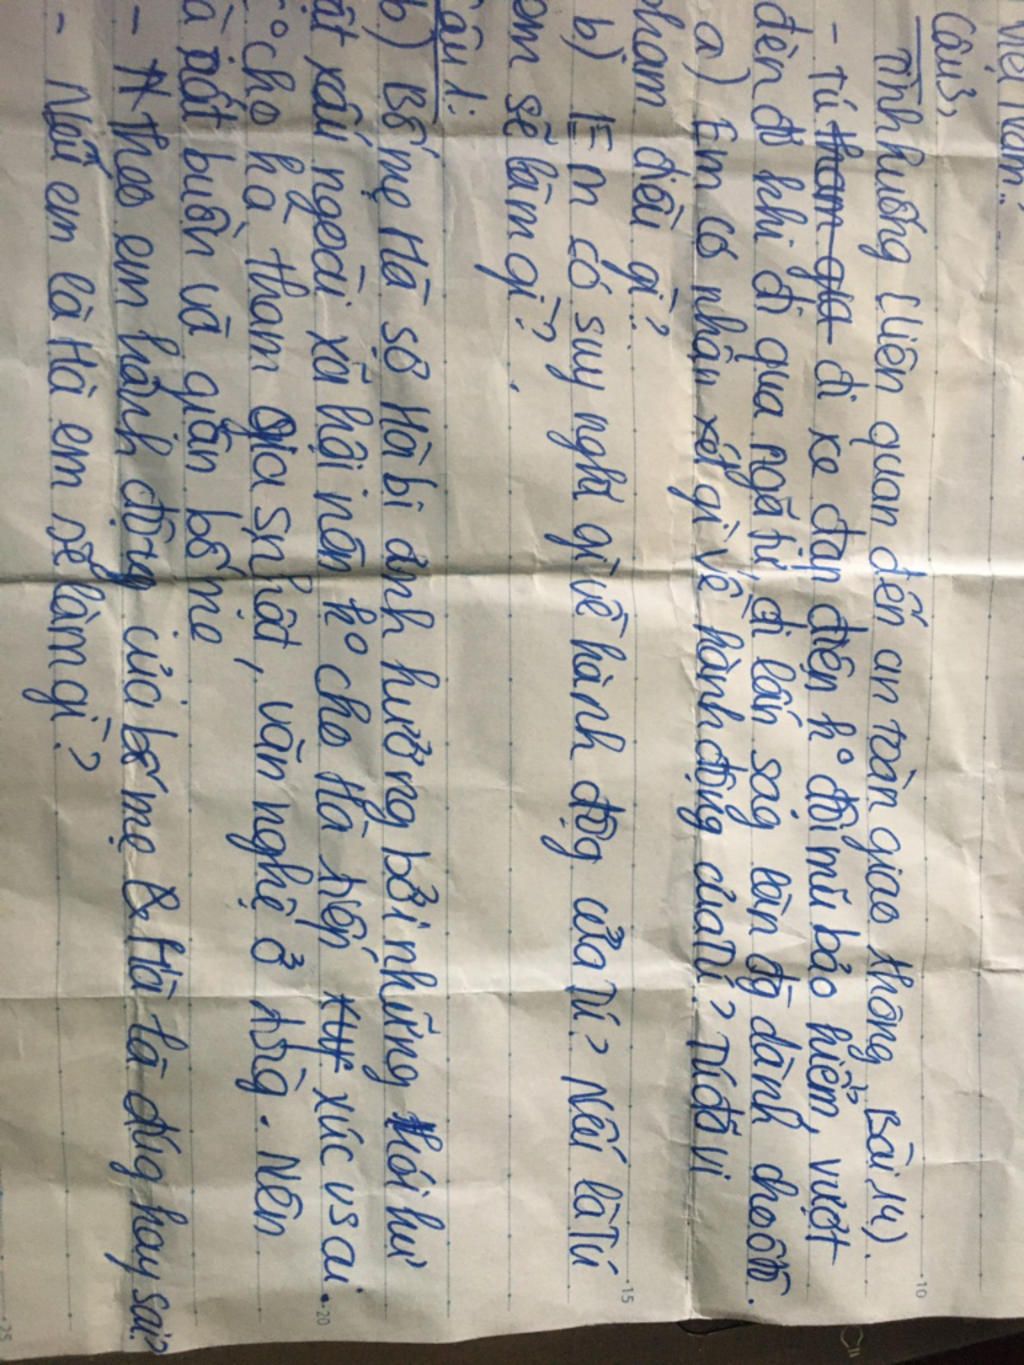 Việt Nam?
Câu 3,
Tình huống (liên quan đến an toàn giao thông, Bài 14).
- Tú tham gia đi xe đạp điện ko đội mũ bảo hiểm, vượt
đèn đỏ khi đi qua ngã tư, đi lấn sag làn đg dành cho ôtô.
a) Em có nhận xét gì về hành động của Tú? Tú đã vi
phạm điều gì?
b) Em có suy nghĩ gì về hành độg của Tú? Nếu là Tú
em sẽ làm gì?
Câu 1:
b) Bố mẹ Hà sợ Hà bị ảnh hưởng bởi những thói hư
tật xấu ngoài xã hội nên ko cho Hà tiếp xúc vs ai.
ko cho hà tham gia snhật, văn nghệ ở . Nên
à rất buồn và giận bố mẹ
- A theo em hành động của bố mẹ & Hà là đúg hay sai?
- Nếu em là Hà em sẽ làm gì?
10
15
20
25